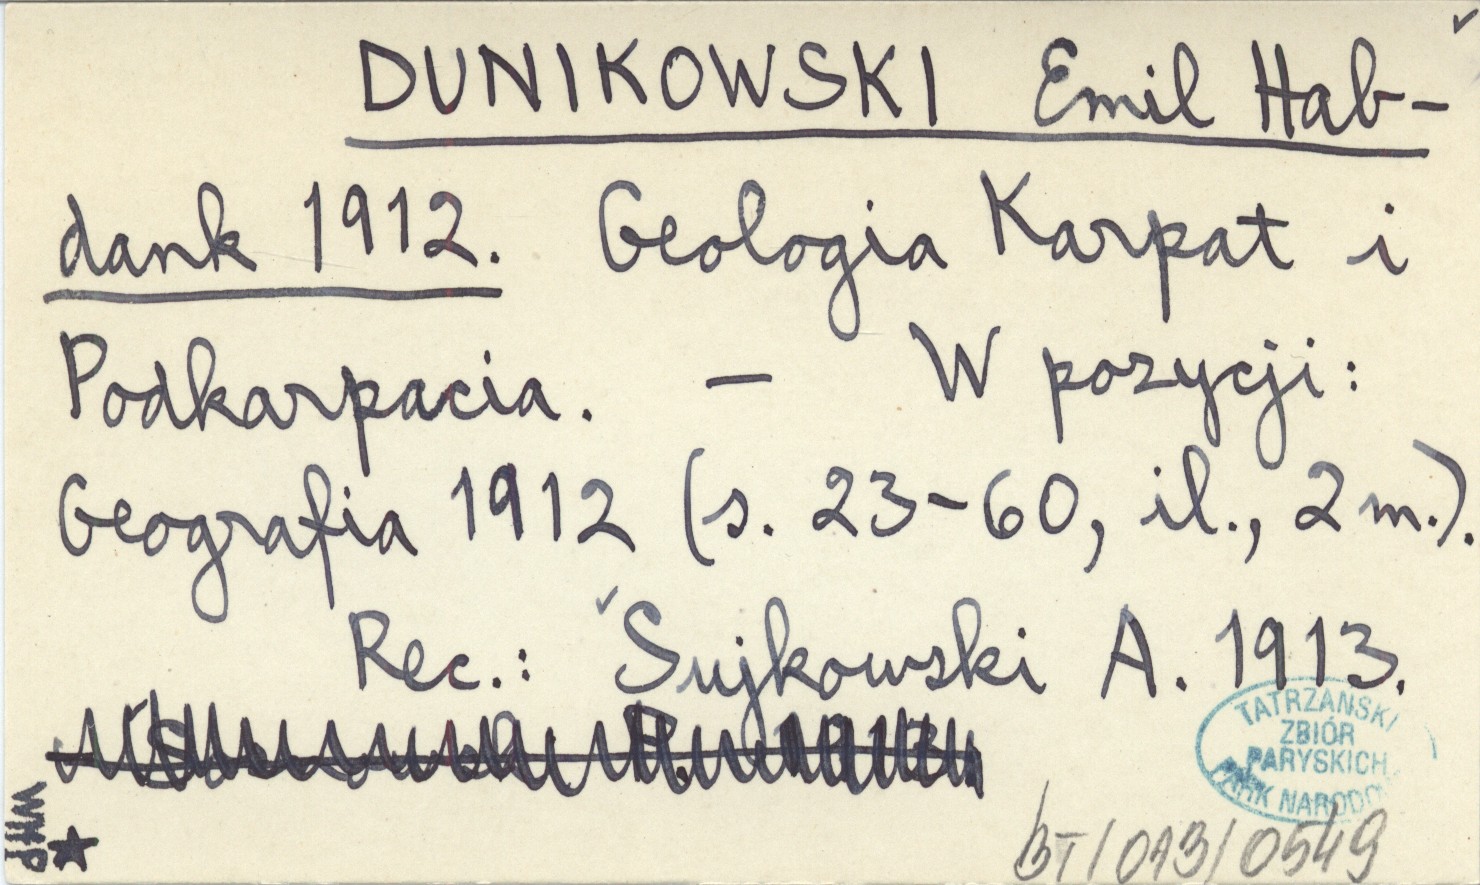 DUNIKOWSKI Emil Hab-
dank 1912. Geologia Karpat i
Podkarpacia. — W pozycji:
Geografia 1912 (s. 23-60, il., 2 m.).
Rec.: Sujkowski A. 1913.
TATRZAŃSKI
ZBIÓR
PARYSKICH
PARK NARODO
WHP
BT/013/0549